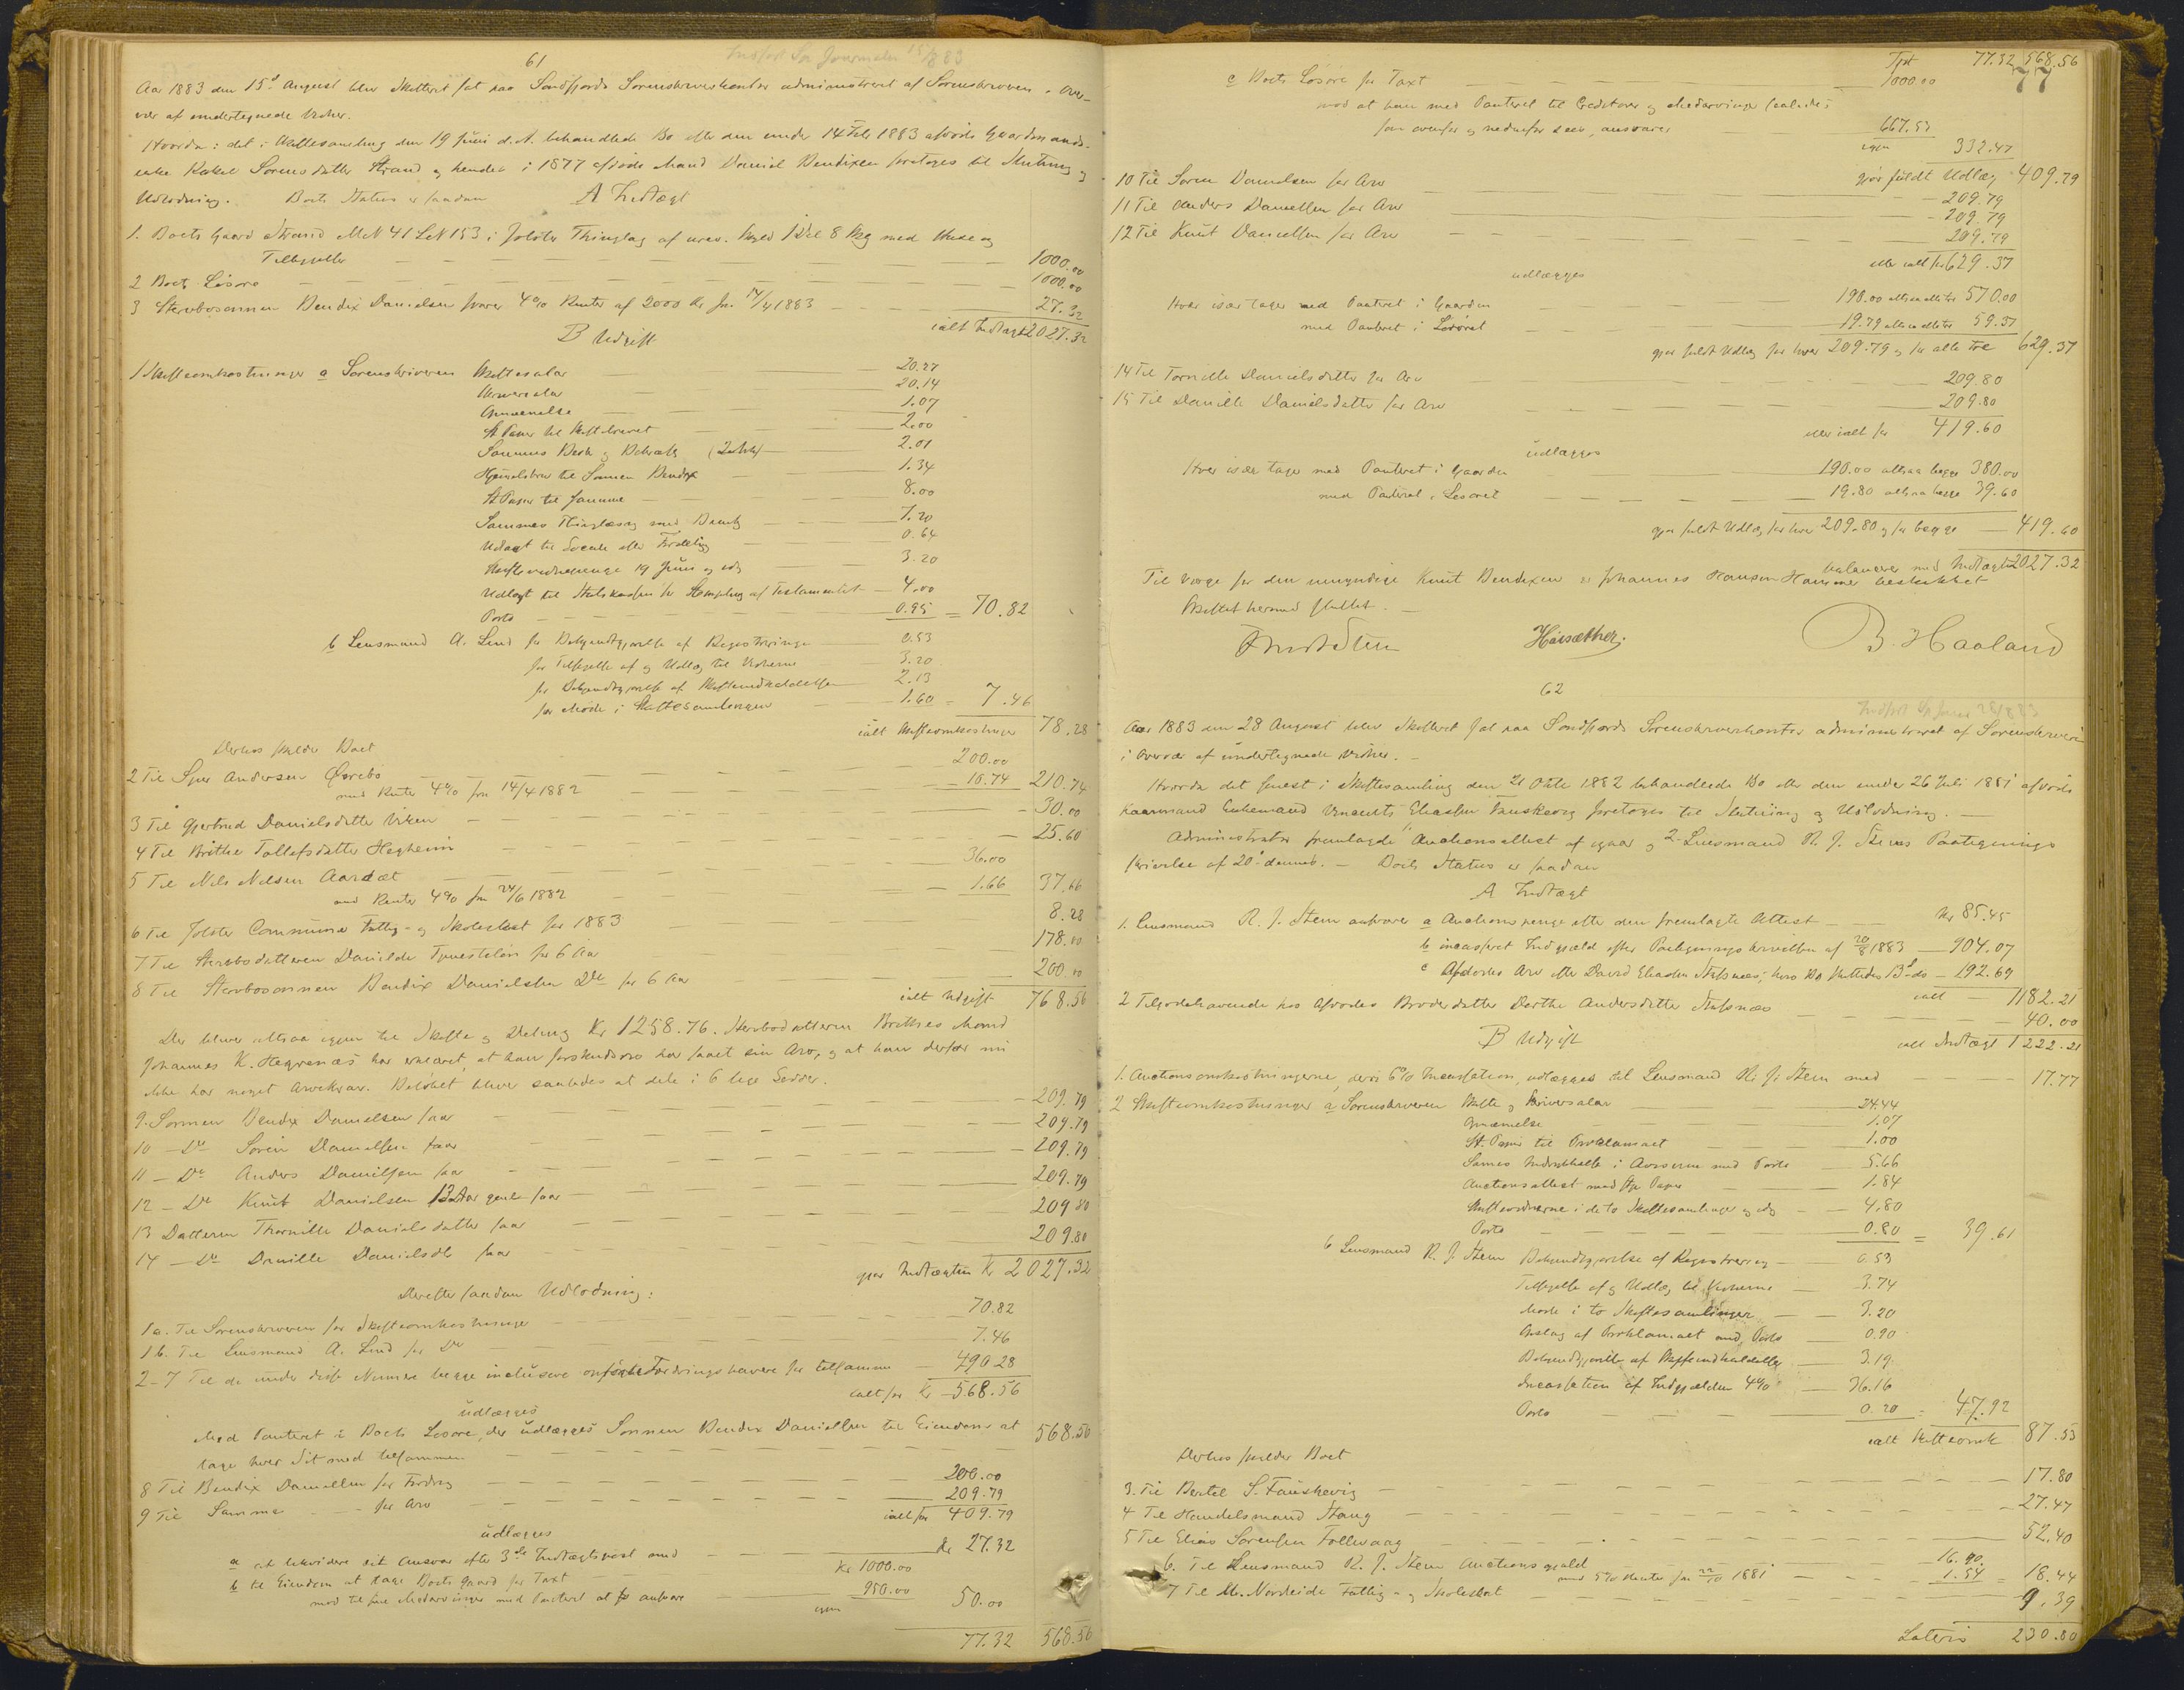 61
Indført Sp Journalen 15/8 83
Aar 1883 den 15d August blev Skifteret sat paa Sondfjords Sorenskriverkontor administreret af Sorenskriveren i Over-
vær af undertegnede Vidner.
Hvorda: det i Skiftesamling den 19 Juni d.A. behandlede Bo efter den under 14 Feb 1883 afdøde Gaardmands-
enke Rakel Sørensdatter Strand og hendes i 1877 afdøde Mand Daniel Bendixen foretoges til Slutning og
Udlodning. Boets Status er saadan
A Indtægt
1. Boets Gaard Strand MN 41 LN 153 i Jølster Thinglag af urev. Skyld 1 Dlr 8 Skg med Huse og
Tilbehør — 1000.00
2 Boets Løsøre — 1000.00
3 Stervbosønnen Bendix Danielsen svarer 4% Renter af 2000 Kr fra 14/4 1883 — 27.32
ialt Indtægt 2027.32
B Udgift
1 Skifteomkostninger a Sorenskriveren Skiftesalær — 20.27
Skriversalær — 20.14
Gjennemelse — 1.07
St Papir til Skiftebrevet — 2.00
Sammes Besk. og Bekræft. — 2.01
Hjemmelsbrev til Sønnen Bendix — 1.34
St Papir til samme — 8.00
Sammes Thinglæsning med Bemk — 7.20
Udlagt til Locale efter Fordeling — 0.64
Skiftevidnepenge 19 Juni og idag — 3.20
Udlagt til Statskassen for Stempling af Testamentet — 4.00
Porto — 0.95 = 70.82
b Lensmand A. Lind for Bekjendtgjørelse af Registreringen — 0.53
for Tilsigelse af og Udlæg til Vidnerne — 3.20
for Bekjendtgjørelse af Skifteindkaldelsen — 2.13
for Møde i Skiftesamlingen — 1.60 = 7.46
ialt Skifteomkostninger 78,28
Derhos skylder Boet
2 Til Sjur Andersen Øvrebø — 200.00
med Renter 4% fra 14/4 1882 — 10.74 210.74
3 Til Gjertrud Danielsdatter Viken — 30.00
4 Til Brithe Tollefsdatter Hegheim — 25.60
5 Til Nils Nilsen Aardæt — 36.00
med Renter 4% fra 24/6 1882 — 1.66 37.66
6 Til Jølster Commune Fattig- og Skoleskat for 1883 — 8.28
7 Til Stervbodatteren Danielde Tjenesteløn for 6 Aar — 178.00
8 Til Stervbosønnen Bendix Danielsen Do for 6 Aar — 200.00
ialt Udgift 768.56
Der bliver altsaa igjen til Skifte og Deling Kr 1258.76. Stervbodatteren Brithes Mand
Johannes K. Hegrenæs har erklæret, at han forskudsvis har faaet sin Arv, og at han derfor nu
ikke har noget Arvekrav. Beløbet bliver saaledes at dele i 6 lige Lodder.
9. Sønnen Bendix Danielsen faar — 209.79
10 — Do Sørin Danielsen faar — 209.79
11 — Do Anders Danielsen faar — 209.79
12 — Do Knut Danielsen 13 Aar gml faar — 209.79
13 Datteren Thornille Danielsdatter faar — 209 80
14 — Do Danille Danielsdt faar — 209.80
gjør Indtægten Kr 2027.32
Derefter saadan Udlodning:
1a. Til Sorenskriveren for Skifteomkostninger — 70.82
1b. Til Lensmand A. Lind for Do — 7.46
2–7 Til de under disse Numere begge inclusive opførte Fordringshavere for tilsammen — 490 28
ialt for Kr 568.56
udlægges
Med Panteret i Boets Løsøre, der udlægges Sønnen Bendix Danielsen til Eiendom at
tage hver Sit med tilsammen — 568.56
8 Til Bendix Danielsen for Fordring — 200.00
9 Til Samme — for Arv — 209.79
ialt for 409.79
udlægges
a at likvidere sit Ansvar efter 3die Indtægtspost med — Kr 27.32
b til Eiendom at tage Boets Gaard for Taxt — Kr 1000.00
mod til sine Medarvinger med Panteret at ansvare — 950.00
igjen 50.00
77.32 568.56
77
Tpt 77.32 568.56
c Boets Løsøre for Taxt — 1000.00
mod at han med Panteret til Creditorer og Medarvinger saaledes
som ovenfor og nedenfor sees, ansvarer 667.53
igjen 332.47
gjør fuldt Udlæg 409.79
10 Til Søren Danielsen for Arv — 209.79
11 Til Anders Danielsen for Arv — 209.79
12 Til Knut Danielsen for Arv — 209.79
eller ialt for 629.37
udlægges
Hver især tager med Panteret i Gaarden — 190.00 altsaa alle tre 570.00
med Panteret i Løsøret — 19.79 altsaa alle tre 59.37
gjør fuldt Udlæg for hver 209.79 og for alle tre 629.37
14 Til Tornille Danielsdatter for Arv — 209.80
15 Til Danille Danielsdatter for Arv — 209.80
eller ialt for 419.60
udlægges
Hver især tager med Panteret i Gaarden — 190.00 altsaa begge 380.00
med Panteret i Løsøret — 19.80 altsaa begge 39.60
gjør fuldt Udlæg for hver 209.80 og for begge — 419.60
balancerer med Indtægten 2027.32
Til Værge for den umyndige Knut Bendixen er Johannes Hansen Hammer beskikket
Skiftet hermed sluttet. —
Høisæther
B. Haaland
62
Indført Sp Journ 28/8 83
Aar 1883 den 28 August blev Skifteret sat paa Sondfjords Sorenskriverkontor administreret af Sorenskriveren
i Overvær af undertegnede Vidner. —
Hvorda det senest i Skiftesamling den 21 Octb 1882 behandlede Bo efter den under 26 Juli 1881 afdøde
Kaarmand Enkemand Vincents Eliassen Fauskevåg foretoges til Slutning og Udlodning. —
Administrator fremlagde 1 Auctionsattest af igaar og 2 Lensmand R. J. Steens Paategnings
skrivelse af 20d dennes. — Boets Status er saadan
A Indtægt
1. Lensmand R. J. Steen ansvarer a Auctionspenge efter den fremlagte Attest — Kr 85.45
b incasseret Indgjæld efter Paategningsskrivelsen af 20/8 1883 — 904.07
c Afdødes Arv efter David Eliassen Stafsnæs, hvis Bo sluttedes 13d ds — 192.69
ialt — 1182.21
2 Tilgodehavende hos Afdødes Broderdatter Dorthe Andersdatter Stafsnæs — 40.00
ialt Indtægt 1222.21
B Udgift
1. Auctionsomkostningerne, deri 6% Incassation, udlægges til Lensmand R. J. Steen med — 17.77
2 Skifteomkostninger a Sorenskriveren Skifte og Skriversalær — 24.44
Gjennemelse — 1.07
St. Papir til Proklamaet — 1.00
Sammes Indrykkelse i Aviserne med Porto — 5.66
Auctionsattest med Stp Papir — 1.84
Skiftevidnerne i de to Skiftesamlinger og idag — 4.80
Porto — 0.80 = 39.61
b Lensmand R. J. Steen Bekjendtgjørelse af Registrering — 0.53
Tilsigelse af og Udlæg til Vidnerne — 3.74
Møde i to Skiftesamlinger — 3.20
Opslag af Proklamaet med Porto — 0.90
Bekjendtgjørelse af Skifteindkaldelse — 3.19
Incassation af Indgjælden 4% — 36.16
Porto — 0.20 = 47.92
ialt Skifteomk 87.53
Derhos skylder Boet
3. Til Bertel S. Fauskevig — 17.80
4 Til Handelsmand Stang — 27.47
5 Til Elias Sørensen Follevaag — 52.40
6. Til Lensmand R. J. Steen Auctionsgjæld — 16.90
med 5% Renter fra 22/10 1881 — 1.54 = 18.44
7 Til Nordeide Fattig- og Skoleskat — 9.39
Lateris 230.80